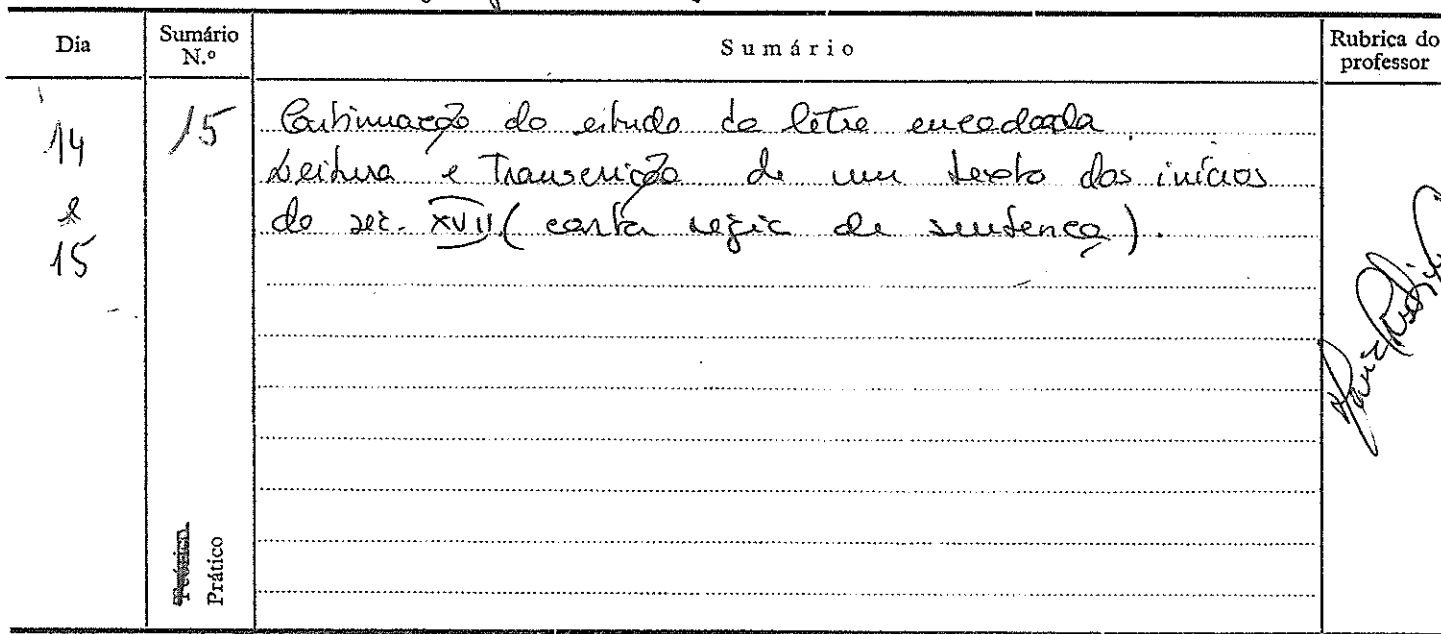 Dia
Sumário N.º
Sumário
Rubrica do professor
14 e 15
15
Continuação do estudo da letra encadeada.
Leitura e Transcrição de um texto dos inícios
do séc. XVII (carta régia de sentença).
Prático